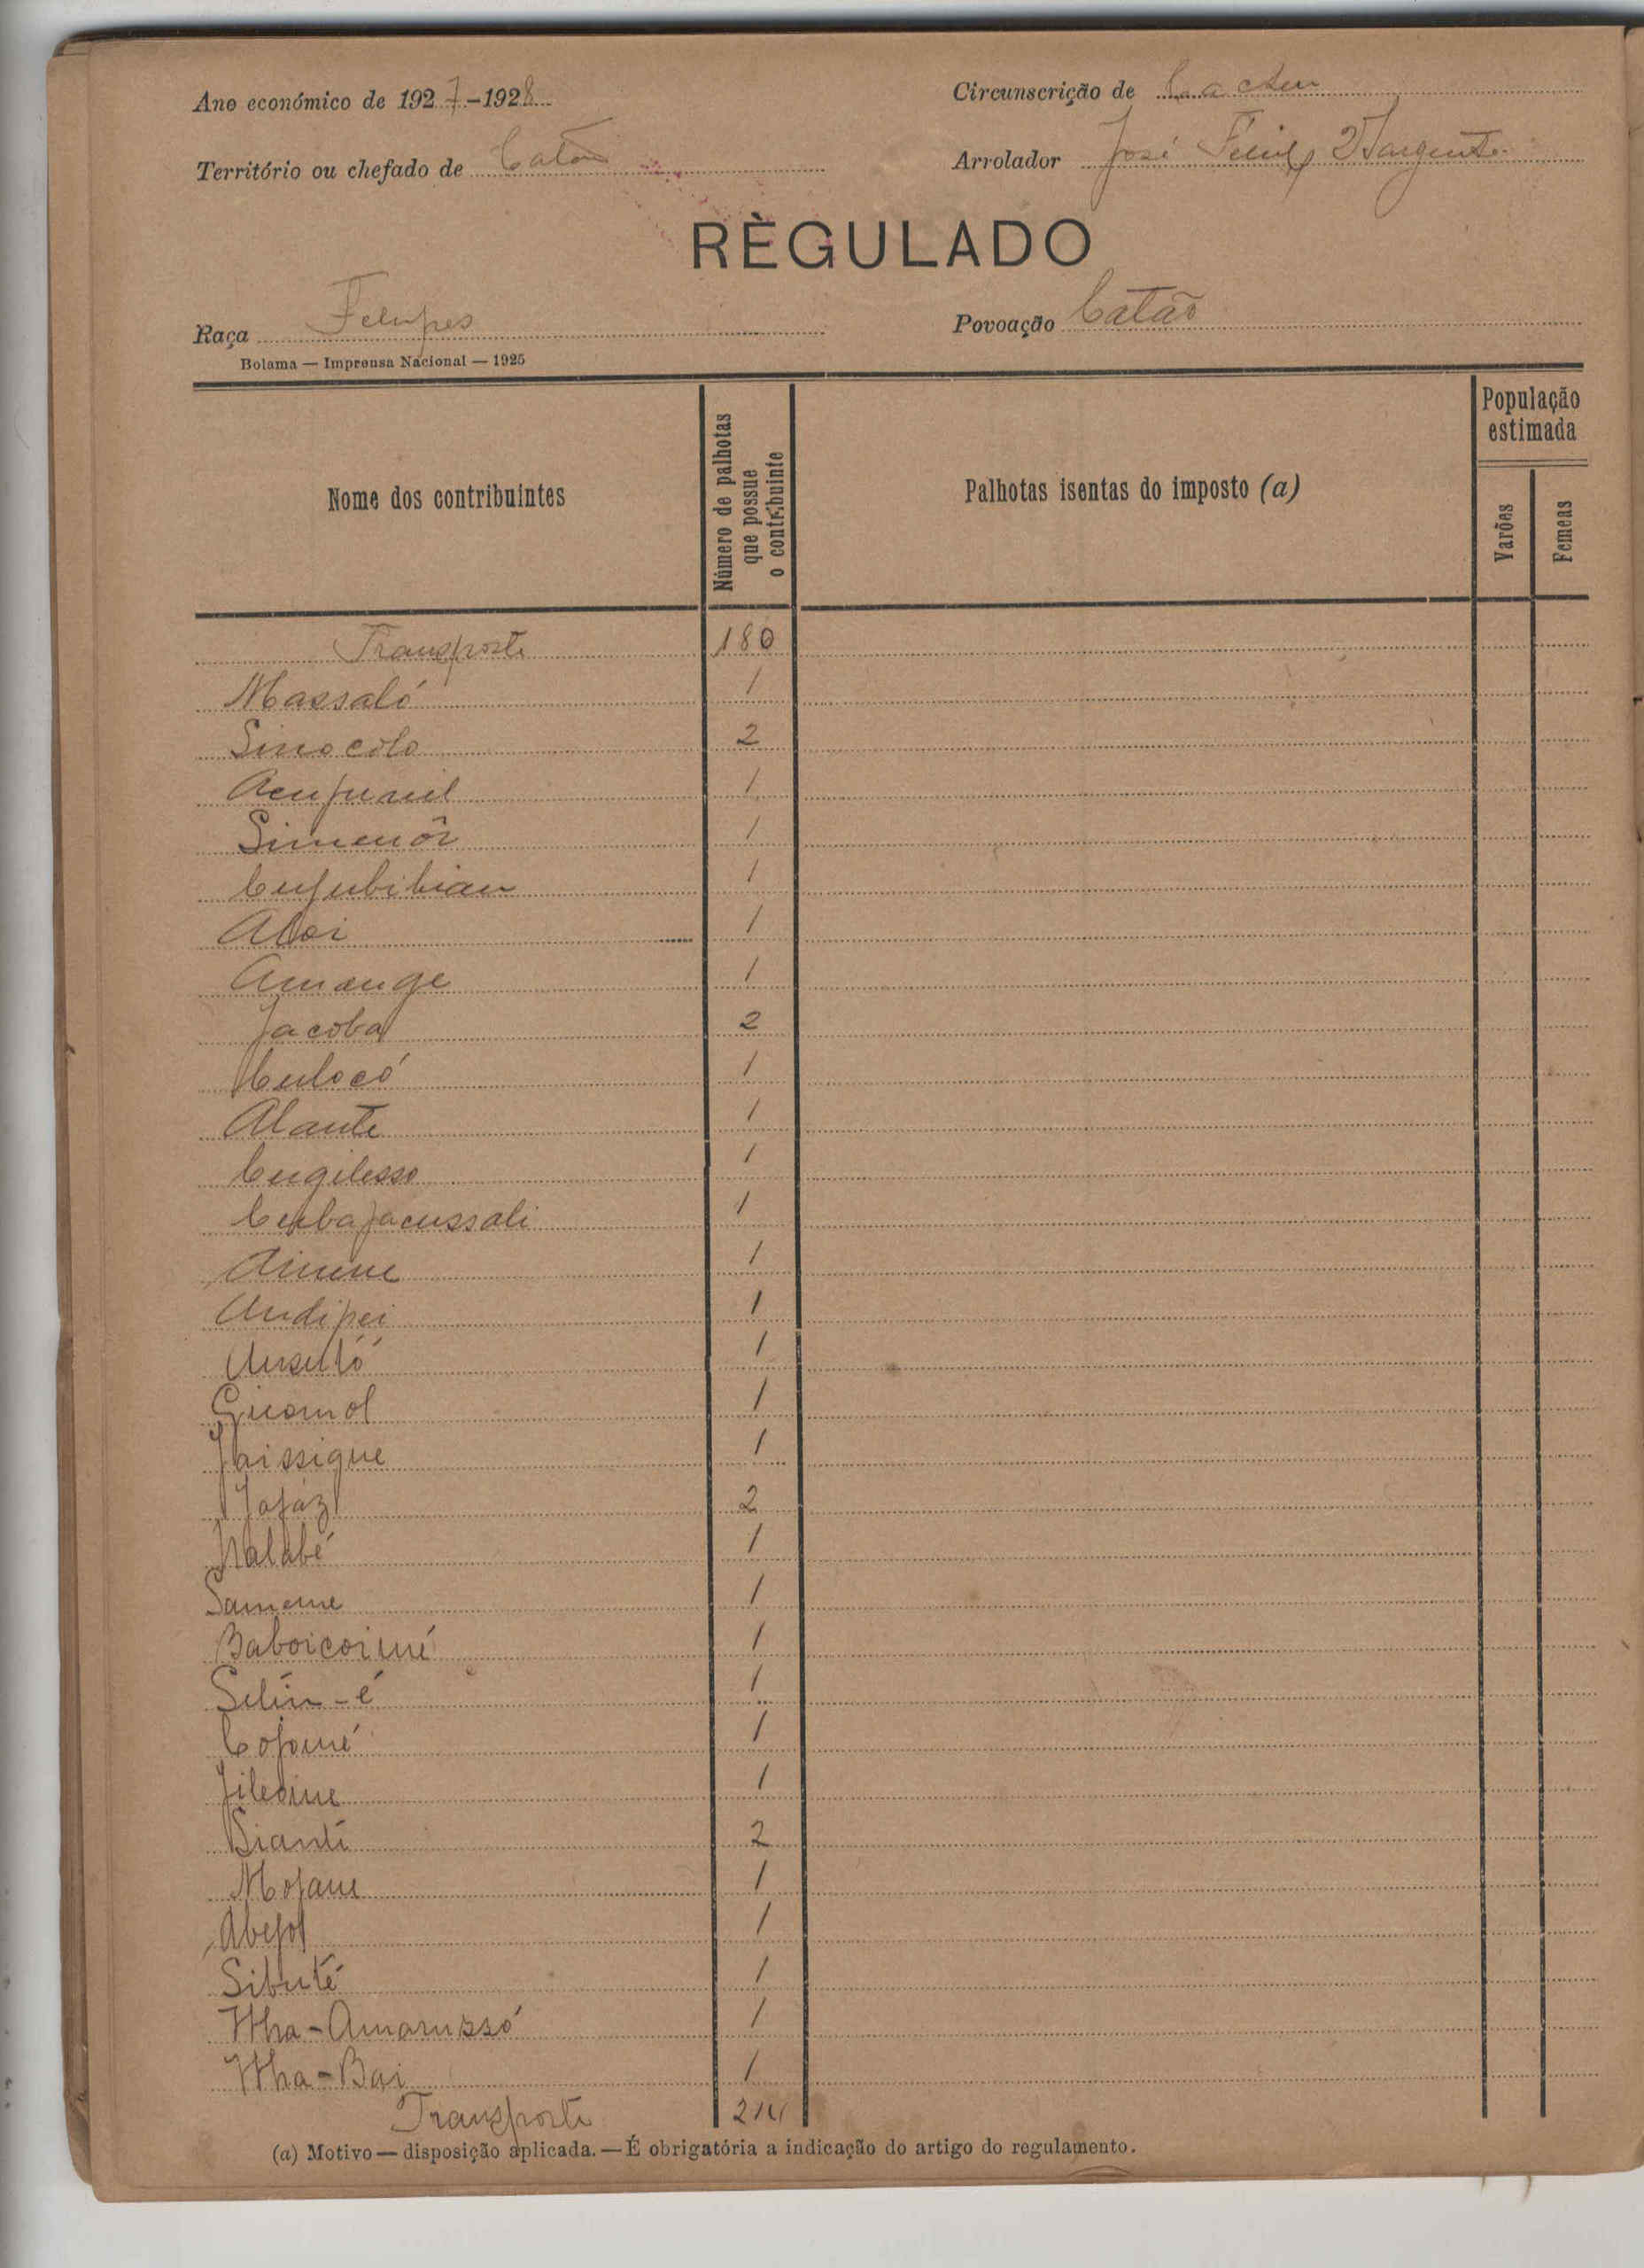 Ano económico de 1927-1928
Circunscrição de Cacheu
Território ou chefado de Catão
Arrolador José 2º Sargento
RÈGULADO
Raça Felupes
Povoação Catão
Bolama — Imprensa Nacional — 1925
Nome dos contribuintes
Número de palhotas que possue o contribuinte
Palhotas isentas do imposto (a)
População estimada
Varões
Femeas
Transporte 180
Massaló 1
Sinocolo 2
1
Simenôr 1
1
Aloi 1
Amange 1
Jacoba 2
Culocó 1
Alante 1
Cugilesso 1
Cubajacussali 1
1
Andipei 1
1
Guomol 1
Jaissique 1
Jajáz 2
Nalabé 1
Sameme 1
Baboicoimé 1
Selin-é 1
Cojomé 1
1
Bianti 2
Mojame 1
Abejol 1
Sibuté 1
Itha-Amarussó 1
Itha-Bai 1
Transporte 214
(a) Motivo — disposição aplicada. — É obrigatória a indicação do artigo do regulamento.